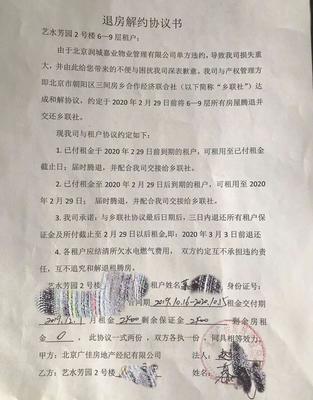 退房解约协议书
艺水芳园2号楼6—9层租户:
由于北京润城嘉业物业管理有限公司单方违约,导致我司损失重
大,并由此给您带来的不便与困扰我司深表歉意。我司与产权管理方
即北京市朝阳区三间房乡合作经济联合社(以下简称“乡联社”)达
成和解协议。约定在2020年2月29日前将6—9层所有房屋腾退并
交还乡联社。
现我司与租户协议约定如下:
1.已付租金于2020年2月29日前到期的租户,可租用至已付租金
截止日;届时腾退,并配合我司交接给乡联社。
2.已付租金至2020年2月29日后到期的租户,可租用至2020
年2月29日;届时腾退,并配合我司交接给乡联社。
3.我司承诺:与乡联社协议最后日期后,三日内退还所有租户保
证金及所付截止至2月29日以后租金,即:2020年3月3日前退还
4.各租户应结清所欠水电燃气费用,双方约定互不承担违约责
任、互不追究和解退租腾房。
艺水芳园2号楼 租户姓名 身份证号:
同期2019.10.16-2020.10.15租金交付期
月租金2400剩余保证金2400剩余房租
金0,此协议一式两份,双方各执一份,同具相等效力。
甲方:北京广佳房地产经纪有限公司 法人:
乙方:艺水芳园2号楼 姓名: